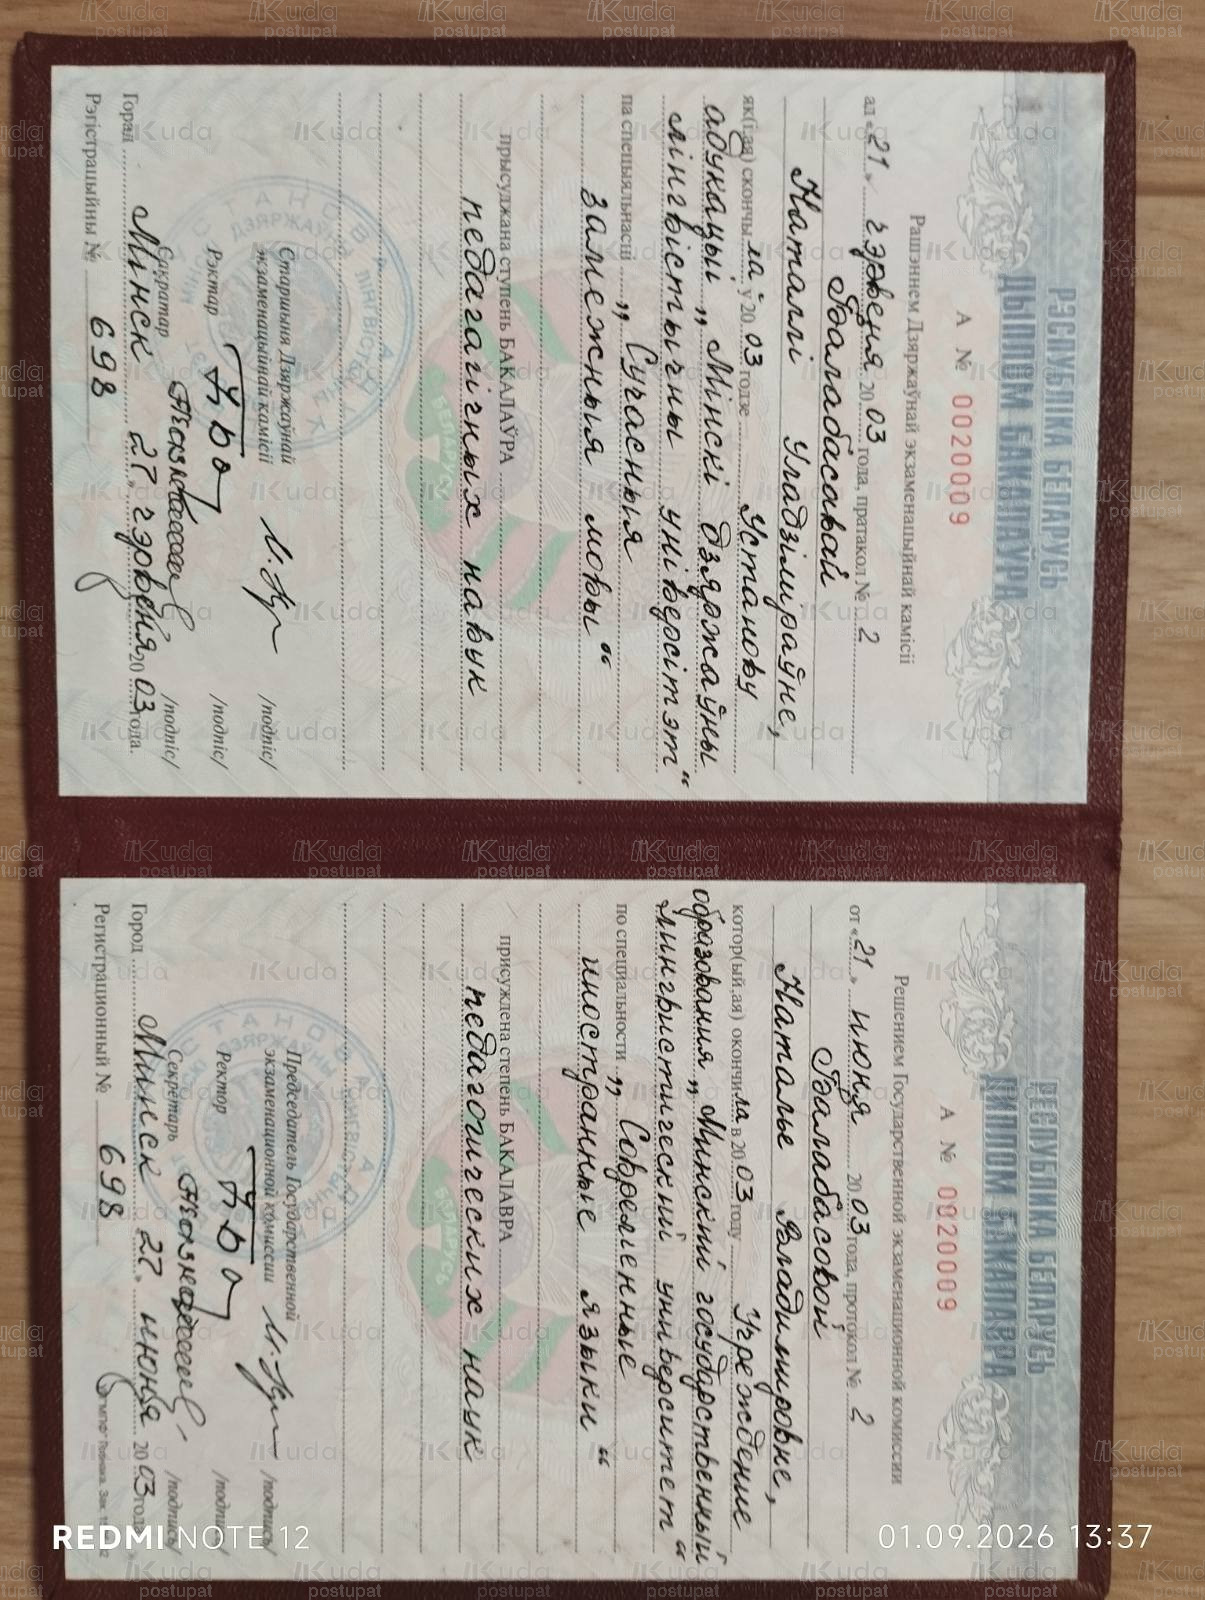 РЭСПУБЛІКА БЕЛАРУСЬ
ДЫПЛОМ БАКАЛАЎРА
А № 0020009
Рашэннем Дзяржаўнай экзаменацыйнай камісіі
ад «21» чэрвеня 2003 года, пратакол № 2
Балабасавай
Наталлі Уладзіміраўне,
як(і,ая) скончыла ў 2003 годзе Установу
адукацыі „Мінскі дзяржаўны
лінгвістычны універсітэт“
па спецыяльнасці „Сучасныя
замежныя мовы“
прысуджана ступень БАКАЛАЎРА
педагагічных навук
Старшыня Дзяржаўнай
экзаменацыйнай камісіі /подпіс/
Рэктар /подпіс/
Сакратар /подпіс/
Горад Мінск 27 чэрвеня 2003 года.
Рэгістрацыйны № 698
РЕСПУБЛИКА БЕЛАРУСЬ
ДИПЛОМ БАКАЛАВРА
А № 0020009
Решением Государственной экзаменационной комиссии
от «21» июня 2003 года, протокол № 2
Балабасовой
Наталье Владимировне,
котор(ый,ая) окончила в 2003 году Учреждение
образования „Минский государственный
лингвистический университет“
по специальности „Современные
иностранные языки“
присуждена степень БАКАЛАВРА
педагогических наук
Председатель Государственной
экзаменационной комиссии /подпись/
Ректор /подпись/
Секретарь /подпись/
Город Минск 27 июня 2003 года
Регистрационный № 698
REDMI NOTE 12
01.09.2026 13:37
//Kuda
postupat